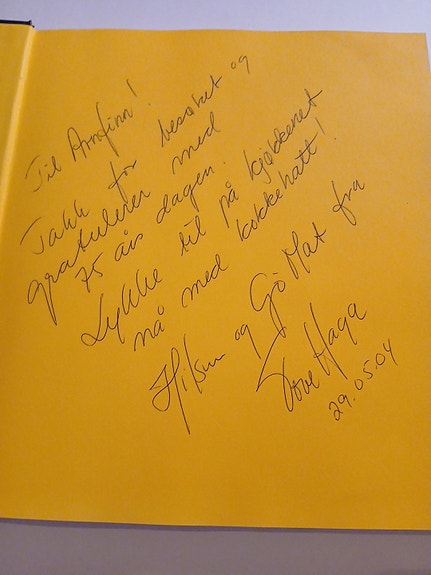 Til Arnfinn!
Takk for besøket og
gratulerer med
75 års dagen.
Lykke til på kjøkkenet
nå med kokkehatt!
Hilsen og Gö Mat fra
Tove Haga
29.05.04